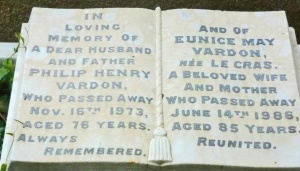 IN
LOVING
MEMORY OF
A DEAR HUSBAND
AND FATHER
PHILIP HENRY
VARDON,
WHO PASSED AWAY
NOV. 16TH 1973,
AGED 76 YEARS.
ALWAYS
REMEMBERED.
AND OF
EUNICE MAY
VARDON,
NÉE LE CRAS.
A BELOVED WIFE
AND MOTHER
WHO PASSED AWAY
JUNE 14TH 1986,
AGED 85 YEARS.
REUNITED.